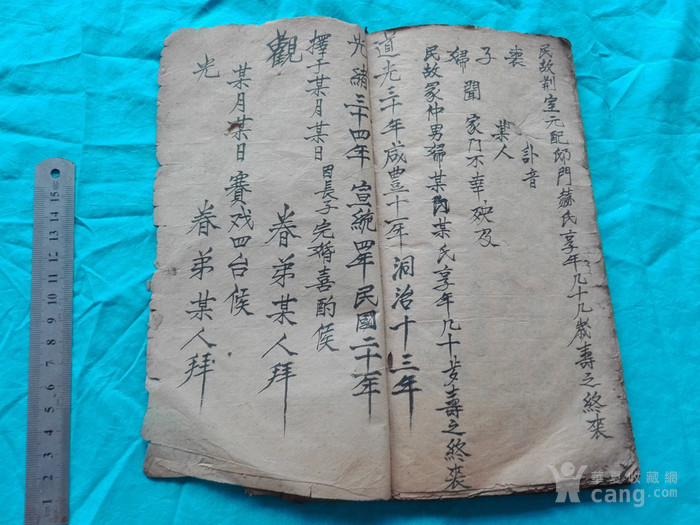 民故荆室元配邱門蘇氏享年几十几歲壽之終喪
訃音
喪 某人
子 聞 家門不幸殃及
婦
民故冢仲男婦某門某氏享年几十岁壽之終喪
道光三十年咸豊十一年洞治十三年
光緒三十四年 宣統四年民國二十一年
擇于某月某日因長子完婚喜酌候
觀 眷弟某人拜
某月某日賽戏四台候
光 眷弟某人拜
華夏收藏網
cang.com
15
14
13
12
11
10
9
8
7
6
5
4
3
2
1